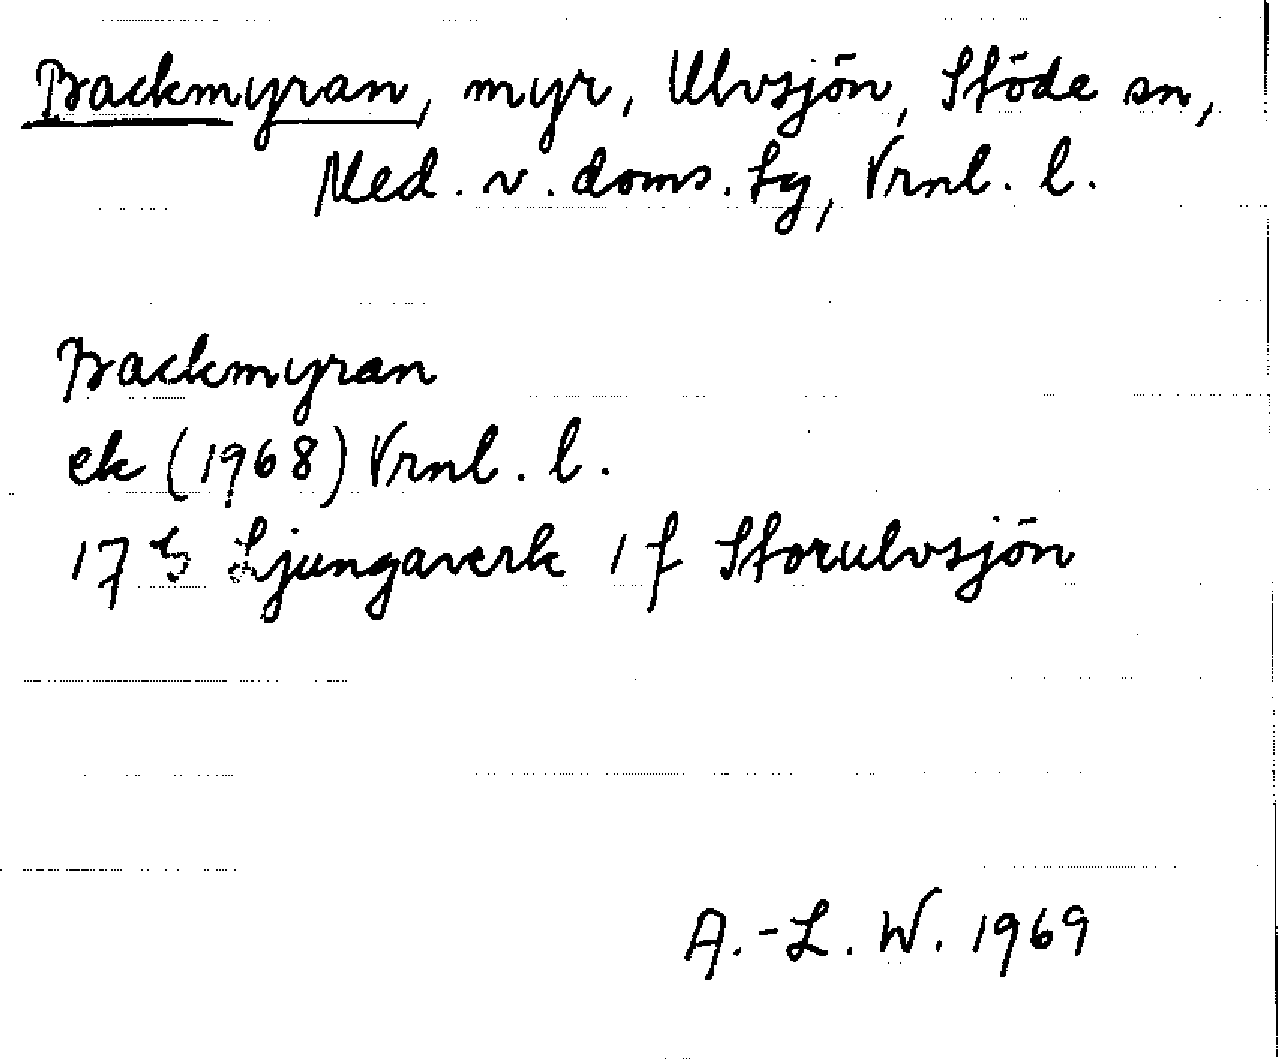 Backmyran, myr, Ulvsjön, Stöde sn,
Med. v. doms. tg, Vrnl. l.
Backmyran
ek (1968) Vrnl. l.
17 G Ljungaverk 1 f Storulvsjön
A.-L. W. 1969